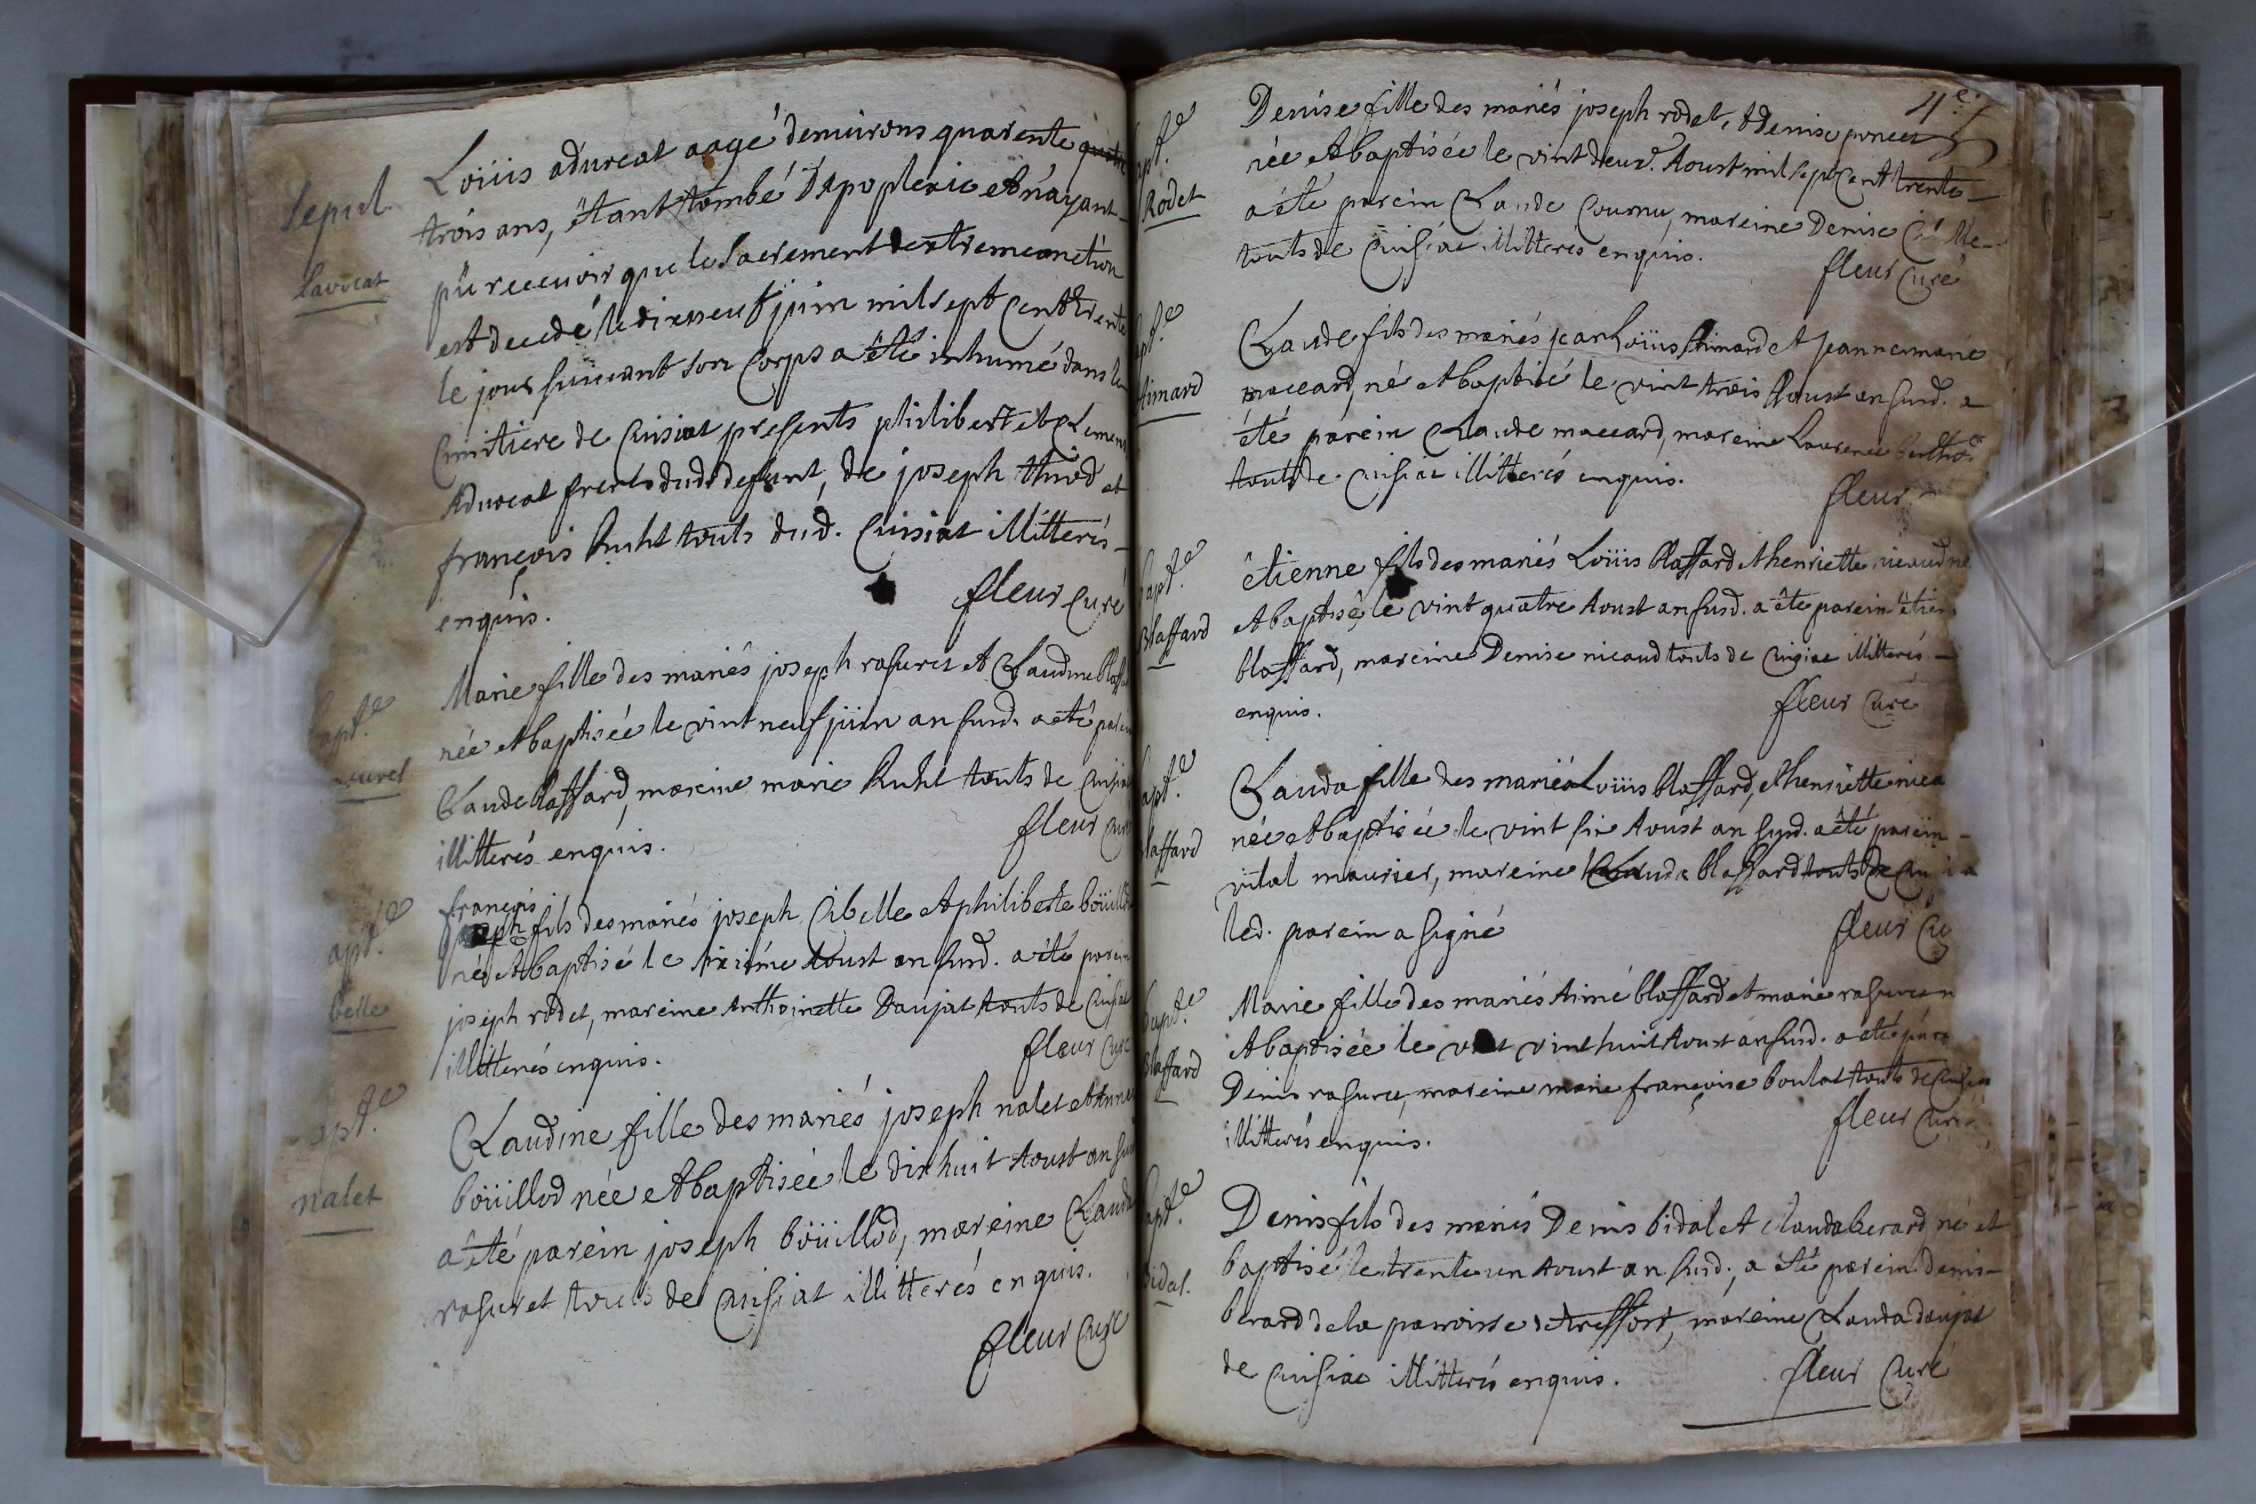 Sepul.
lavocat
Loüis aduocat aagé denuirons quarente quatre
trois ans, êtant tombé Dapoplexie et n'ayant
pû receuoir que le Sacrement dextremeonction
est decedé le dixneuf juin mil sept cent trente
le jour suiuant son Corps a êté inhumé dans le
Cimitiere de Cuisiat presents philibert et Clement
Aduocat freres dudt defunt, de joseph thiod et
françois Ruht touts dud. Cuisiat illitterés
enquis. fleur Curé
apt.e
urel
Marie fille des mariés joseph rasurel et Claudine blaffard
née et baptisée le vint neuf juin an susd. a eté parein
Claude blaffard, mareine marie Ruht touts de Cuisiat
illitterés enquis. fleur curé
apt.e
belle
françois
joseph fils des mariés joseph Cibelle et philiberte boüillod
né et baptisé le sixiéme Aoust an susd. a été parein
joseph rodet, mareine Anthoinette Daujat touts de Cuisiat
illitterés enquis. fleur Curé
apt.e
nalet
Claudine fille des mariés joseph nalet et Anne
boüillod née et baptisée le dixhuit Aoust an susd
a êté parein joseph boüillod, mareine Clauda
rasuret touts de Cuisiat illitterés enquis.
fleur Curé
4.e
apt.e
Rodet
Denise fille des mariés joseph rodet, et Denise poncet
née et baptisée le vint deux.e Aoust mil sept cent trente
a êté parein Claude Cournu, mareine Denise
touts de Cuisiat illitterés enquis. fleur Curé
apt.e
Aimard
Claude fils des mariés jean Loüis Aimard et jeanne marie
maccard, né et baptisé le vint trois Aoust an susd. a
été parein Claude maccard, mareine Laurence
touts de Cuisiat illitterés enquis. fleur
bapt.e
Blaffard
êtienne fils des mariés Loüis blaffard et henriette nicaud né
et baptisé le vint quatre Aoust an susd. a êté parein êtien
blaffard, mareine Denise nicaud touts de Cuisiat illitterés
enquis. fleur Curé
bapt.e
laffard
Clauda fille des mariés Loüis blaffard, et henriette nica
née et baptisée le vint six Aoust an susd. a êté parein
vital maurier, mareine Clauda blaffard touts de Cuisia
led. parein a signé fleur Cu
bapt.e
Blaffard
Marie fille des mariés Aimé blaffard et marie rasuret n
et baptisée le vint huit Aoust an susd. a êté pare
Denis rasuret, mareine marie françoise boulat touts de Cuisiat
illitterés enquis. fleur Curé
bapt.e
Bidal.
Denis fils des mariés Denis bidal et Clauda berard né et
baptisé le trente un Aoust an susd., a êté parein denis
berard de la parroisse de treffort, mareine Clauda daujat
de Cuisiat illitterés enquis. fleur Curé